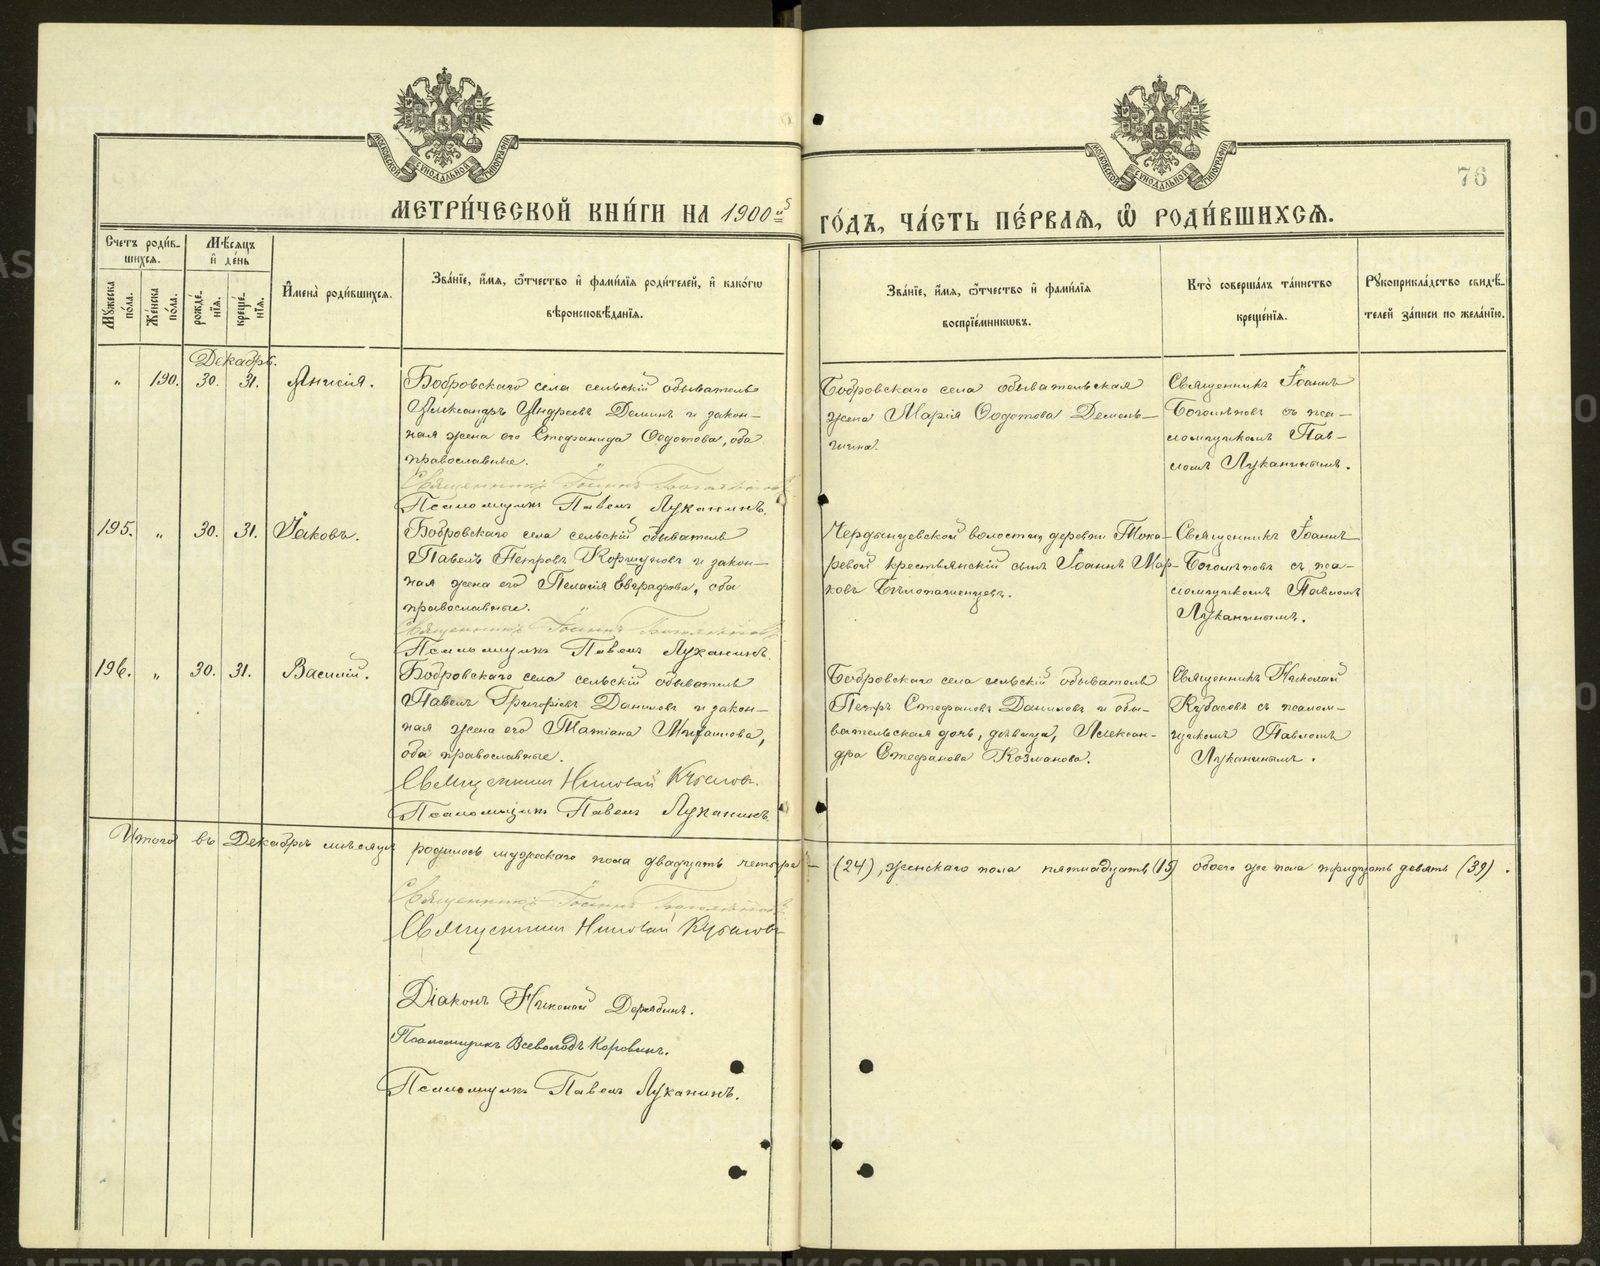 МЕТРИ́ЧЕСКОЙ КНИ́ГИ НА 1900й
ГО́ДЪ, ЧА́СТЬ ПЕ́РВАЯ, Ѽ РОДИ́ВШИХСЯ.
76
МОСКОВСКОЙ СѴНОДАЛЬНОЙ ТИПОГРАФІИ
МОСКОВСКОЙ СѴНОДАЛЬНОЙ ТИПОГРАФІИ
Счетъ роди́в-
шихся.
Мѣ́сяцъ
и҆ де́нь
Мꙋ́жеска
по́ла.
Же́нска
по́ла.
рожде́-
нїѧ.
креще́-
нїѧ.
И҆мена̀ роди́вшихся.
Зва́нїе, и҆́мя, ѻ҆́тчество и҆ фами́лїя роди́телей, и҆ како́гѡ
вѣроисповѣ́данїя.
Зва́нїе, и҆́мя, ѻ҆́тчество и҆ фами́лїя
воспрїе́мникѡвъ.
Кто̀ соверша́лъ та́инство
креще́нїя.
Рꙋкоприкла́дство свидѣ́-
телей за́писи по жела́нїю.
Декабрь.
" 190. 30. 31. Анисія.
Бобровскаго села сельскій обыватель
Александръ Андреевъ Деминъ и закон-
ная жена его Стефанида Ѳедотова, оба
православные.
Священникъ Іоаннъ Боголѣповъ
Псаломщикъ Павелъ Луканинъ.
Бобровскаго села обывательская
жена Марія Ѳедотова
Священникъ Іоаннъ
Боголѣповъ съ пса-
ломщикомъ Пав-
ломъ Луканинымъ.
195. " 30. 31. Іаковъ.
Бобровскаго села сельскій обыватель
Павелъ Петровъ Коршуновъ и закон-
ная жена его Пелагія Евграфова, оба
православные.
Священникъ Іоаннъ Боголѣповъ
Псаломщикъ Павелъ Луканинъ.
волости, деревни Тока-
ревой крестьянскій сынъ Іоаннъ Мар-
ковъ Бѣлопашенцевъ.
Священникъ Іоаннъ
Боголѣповъ съ пса-
ломщикомъ Павломъ
Луканинымъ.
196. " 30. 31. Василій.
Бобровскаго села сельскій обыватель
Павелъ Григорьевъ Даниловъ и закон-
ная жена его Татіана Михаилова,
оба православные.
Священникъ Николай Кубасовъ.
Псаломщикъ Павелъ Луканинъ.
Бобровскаго села сельскій обыватель
Петръ Стефановъ Даниловъ и обы-
вательская дочь, дѣвица, Алексан-
дра Стефанова Козманова.
Священникъ Николай
Кубасовъ съ псалом-
щикомъ Павломъ
Луканинымъ.
Итого въ Декабрѣ мѣсяцѣ родилось мужескаго пола двадцать четыре – (24), женскаго пола пятнадцать (15) обоего же пола тридцать девять (39).
Священникъ Іоаннъ Боголѣповъ
Священникъ Николай Кубасовъ
Діаконъ Николай Дерябинъ.
Псаломщикъ Всеволодъ Коровинъ.
Псаломщикъ Павелъ Луканинъ.